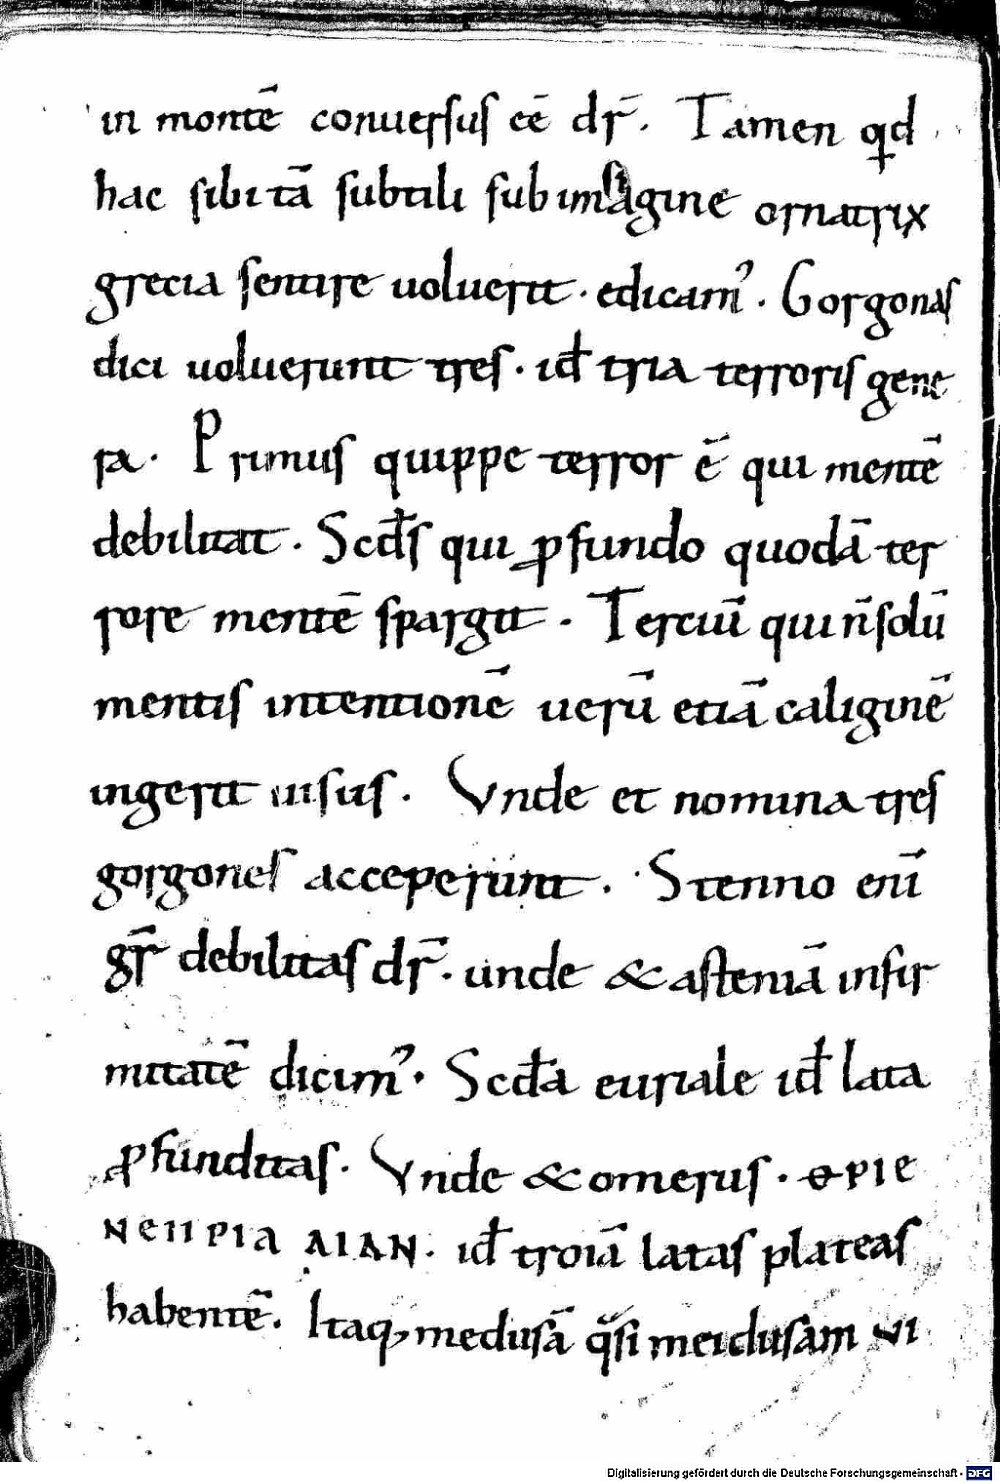 in montē conuersus eē dr̄. Tamen qd
hac sibi tā subtili sub imagine ornatrix
grecia sentire uoluerit. edicam᾿. Gorgonas
dici uoluerunt tres. id tria terroris gene
ra. Primus quippe terror ē qui mentē
debilitat. Scds qui ꝓfundo quodā ter
rore mentē spargit. Terciū qui n̄ solū
mentis intentionē uerū etiā caliginē
ingerit uisus. Vnde et nomina tres
gorgones acceperunt. Stenno eni
gr̄ debilitas dr̄. unde & asteniā infir
mitatē dicim᾿. Scda euriale id lata
ꝓfunditas. Vnde & omerus.
id troiā latas plateas
habentē. Itaq, medusā q̄si meidusam
Digitalisierung gefördert durch die Deutsche Forschungsgemeinschaft - DFG